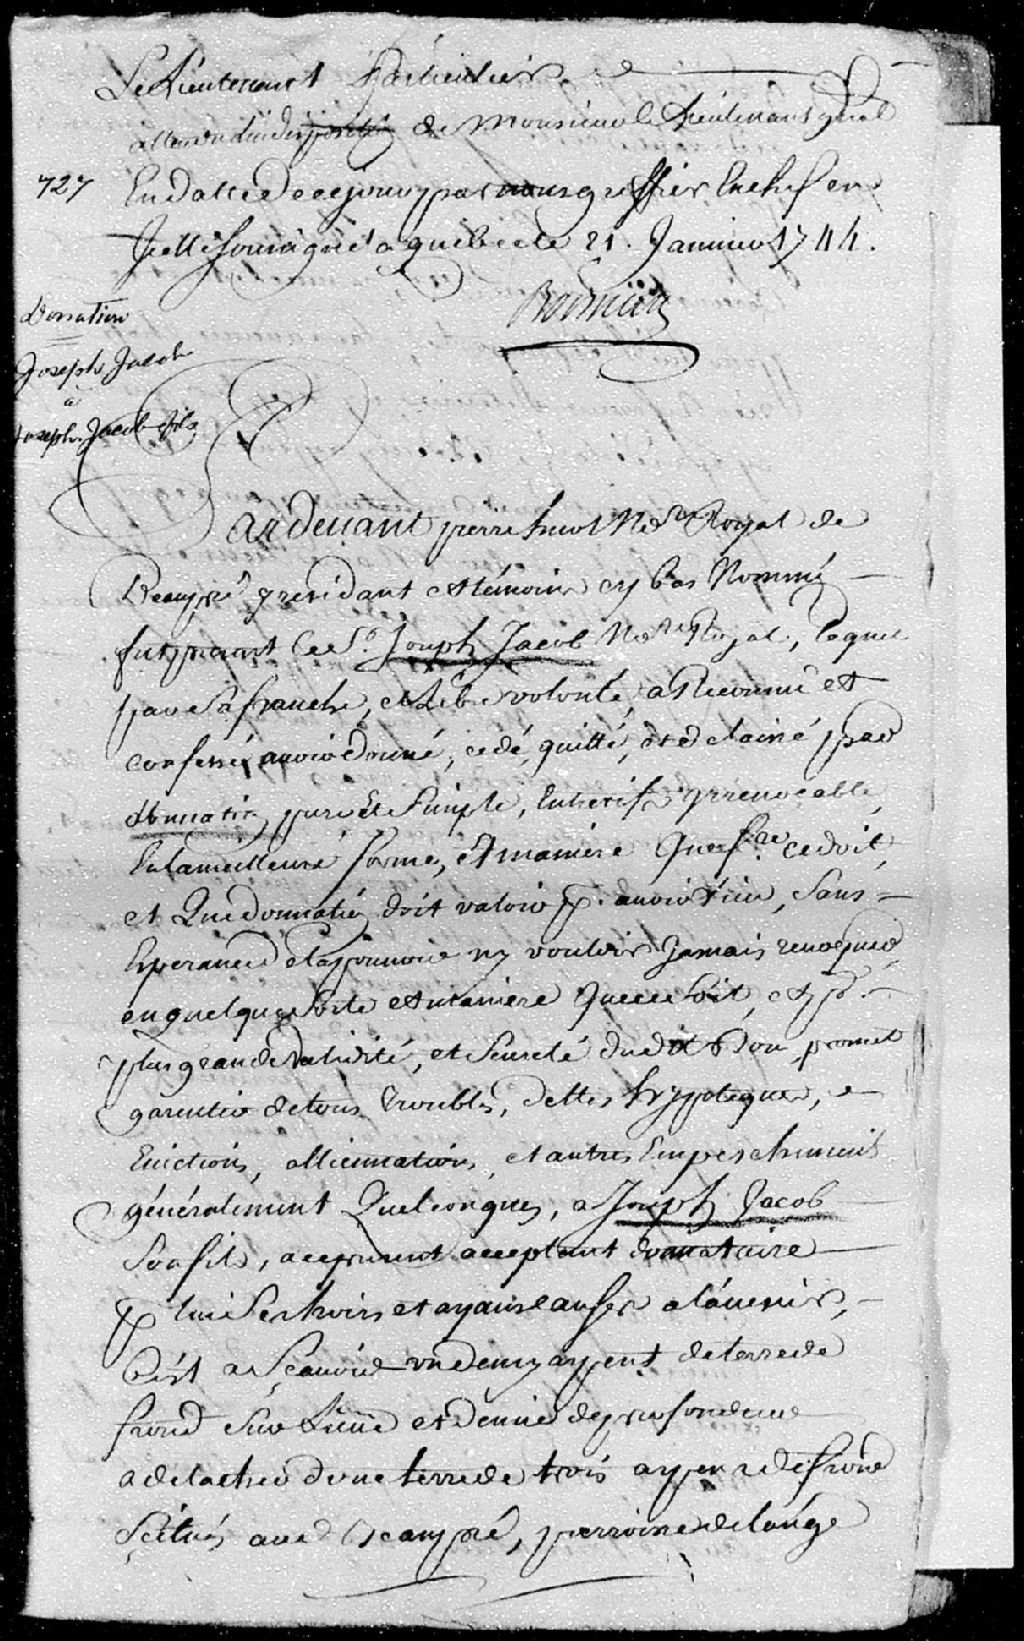 Le Lieutenant Particulier
attendu l'indisposition de Monsieur le Lieutenant gnal
727
En datte de ce jour par nous greffier En chef en
Icelle soussigné a quebec le 21. Janvier 1744.
Boisseau
Donation
Joseph Jacob
a
Joseph Jacob fils
Pardevant pierre huot Nore Royal de
Beaupré y residant et témoins cy bas Nommé
fut present le Sr. Joseph Jacob Nore Royal, lequel
par sa franche, et Libre volonté, a Reconnu et
confessé avoir donné, cedé, quitté, et delaissé par
donnation pure et Simple, Entrevifs yrrevocable,
En la meilleure forme, et maniere Que fre ce doit,
et Que donnation doit valoir pr. avoir lieu, sans
Esperance et a pouvoir ny vouloir Jamais revoquer
en quelque sorte et maniere Que ce soit, et pr.
plus grande validité, et seureté dudit Don promet
garentir de tous troubles, dettes hyppoteques,
Evictions, allienations, et autres Empeschements
généralement Quelconques, a Joseph Jacob
son fils, a ce present acceptant donnataire
pr lui Ses hoirs et ayans causes a l'avenir,
C'est a Sçavoir un demy arpent de terre de
frond sur Lieue et demie de profondeur
a detacher d'une terre de trois arpens de frond
Scitués aud Beaupré, parroisse de l'ange